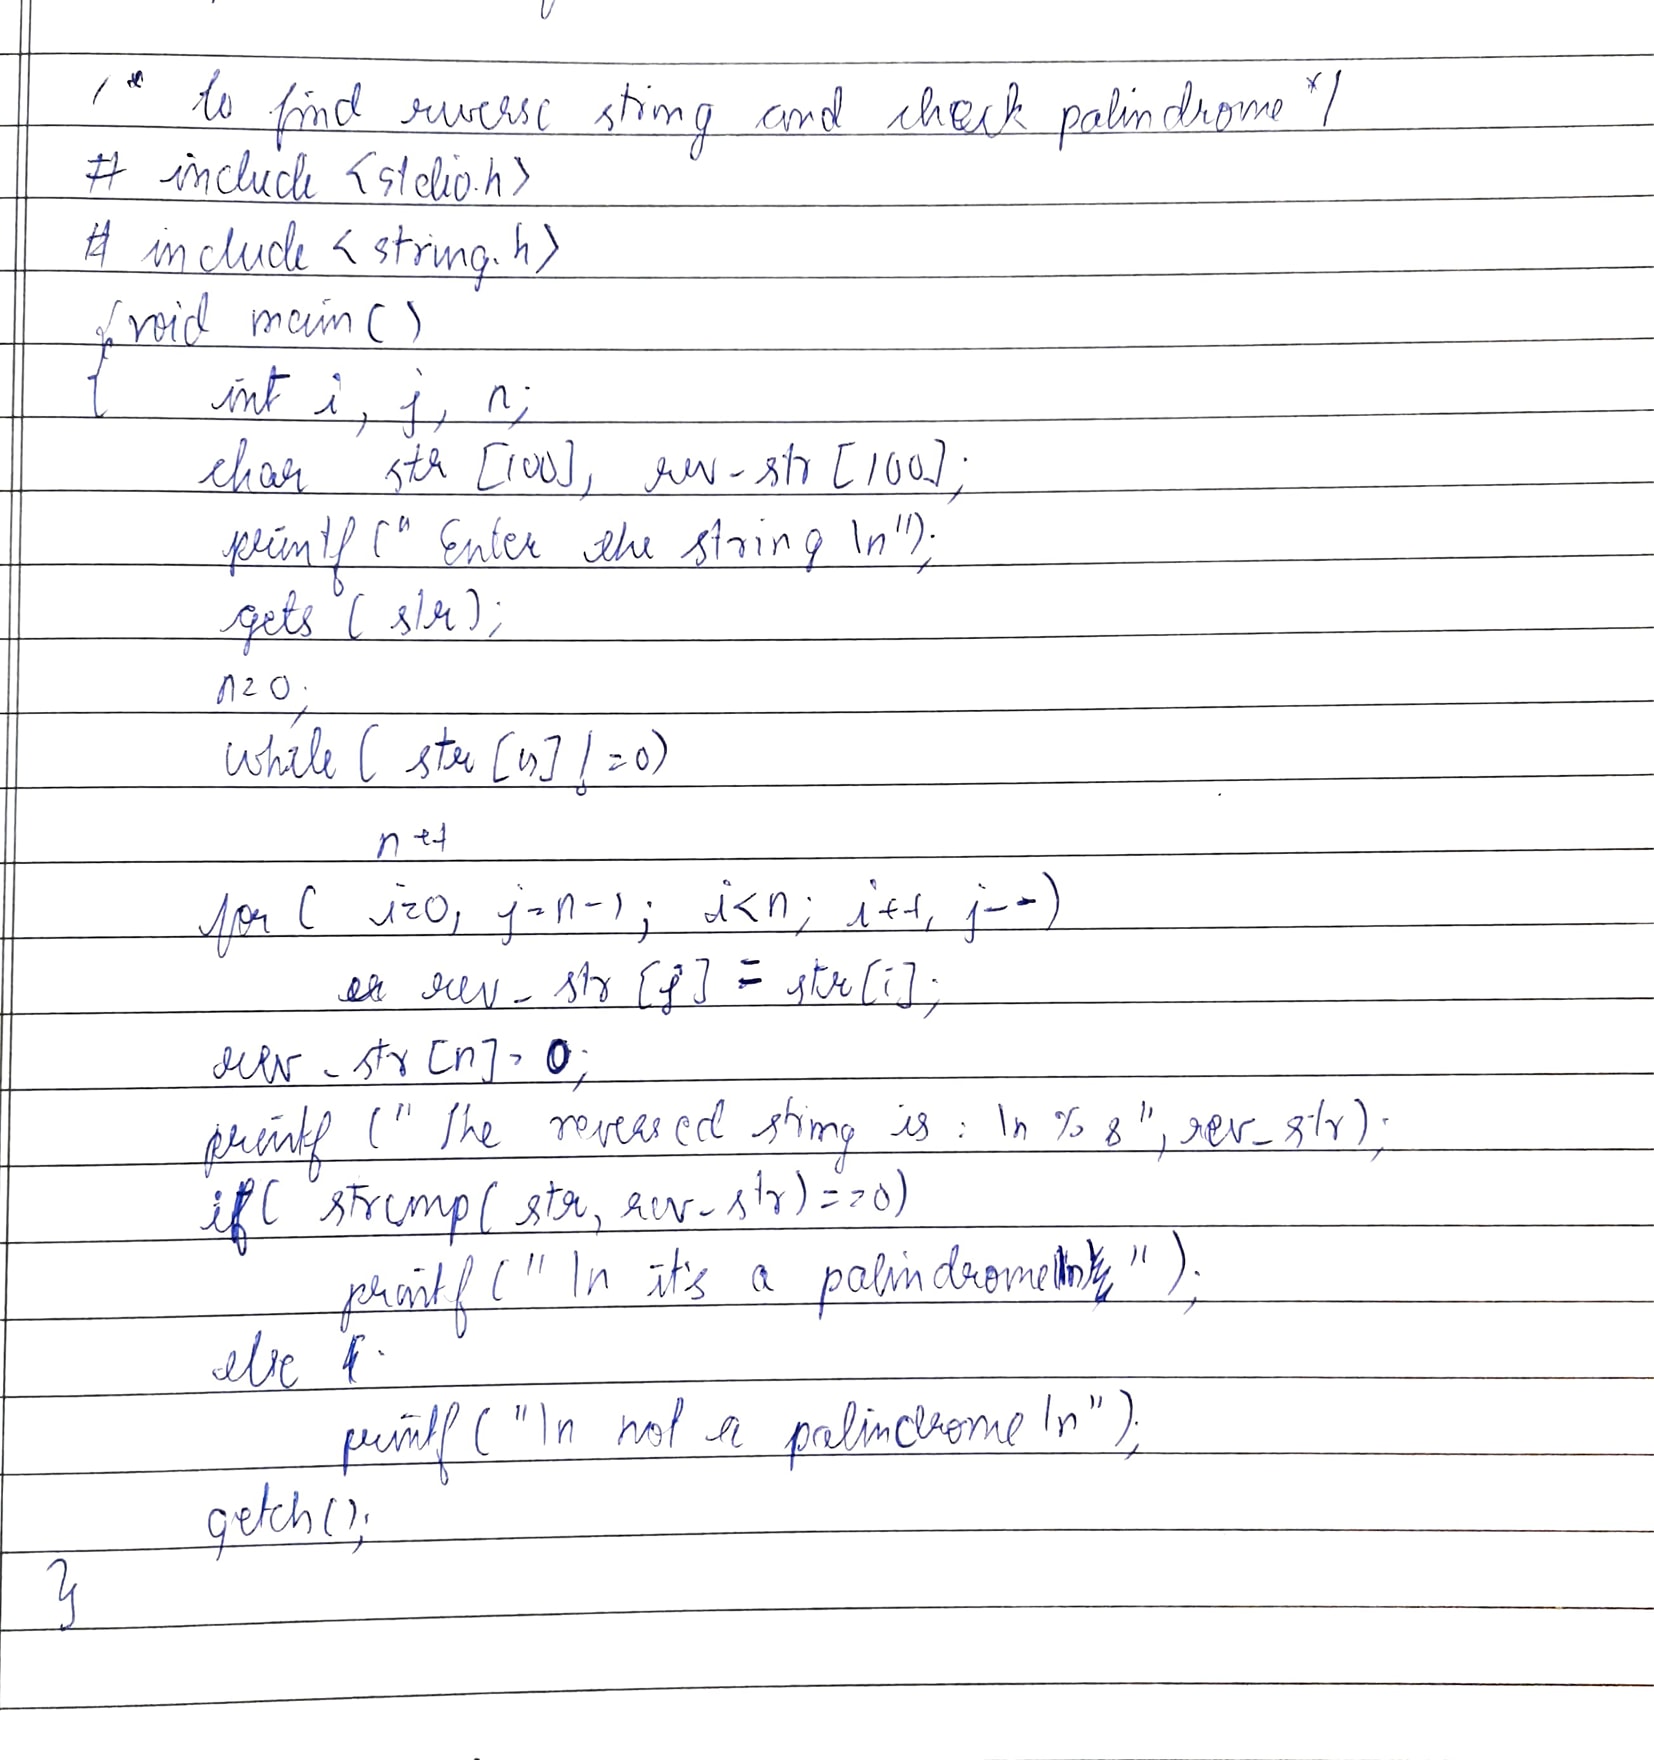 /* to find reverse string and check palindrome */
# include <stdio.h>
# include <string.h>
{ void main()
int i, j, n;
char str [100], rev-str [100];
printf (" Enter the string \n");
gets ( str);
n=0;
while ( str [n] != 0)
n++
for ( i=0, j=n-1; i<n; i++, j--)
rev_str [j] = str[i];
rev_str [n] = 0;
printf (" The reversed string is : \n %s", rev_str);
if( strcmp( str, rev-str)==0)
printf (" \n it's a palindrome\n ");
else {
printf ("\n not a palindrome \n");
getch();
}